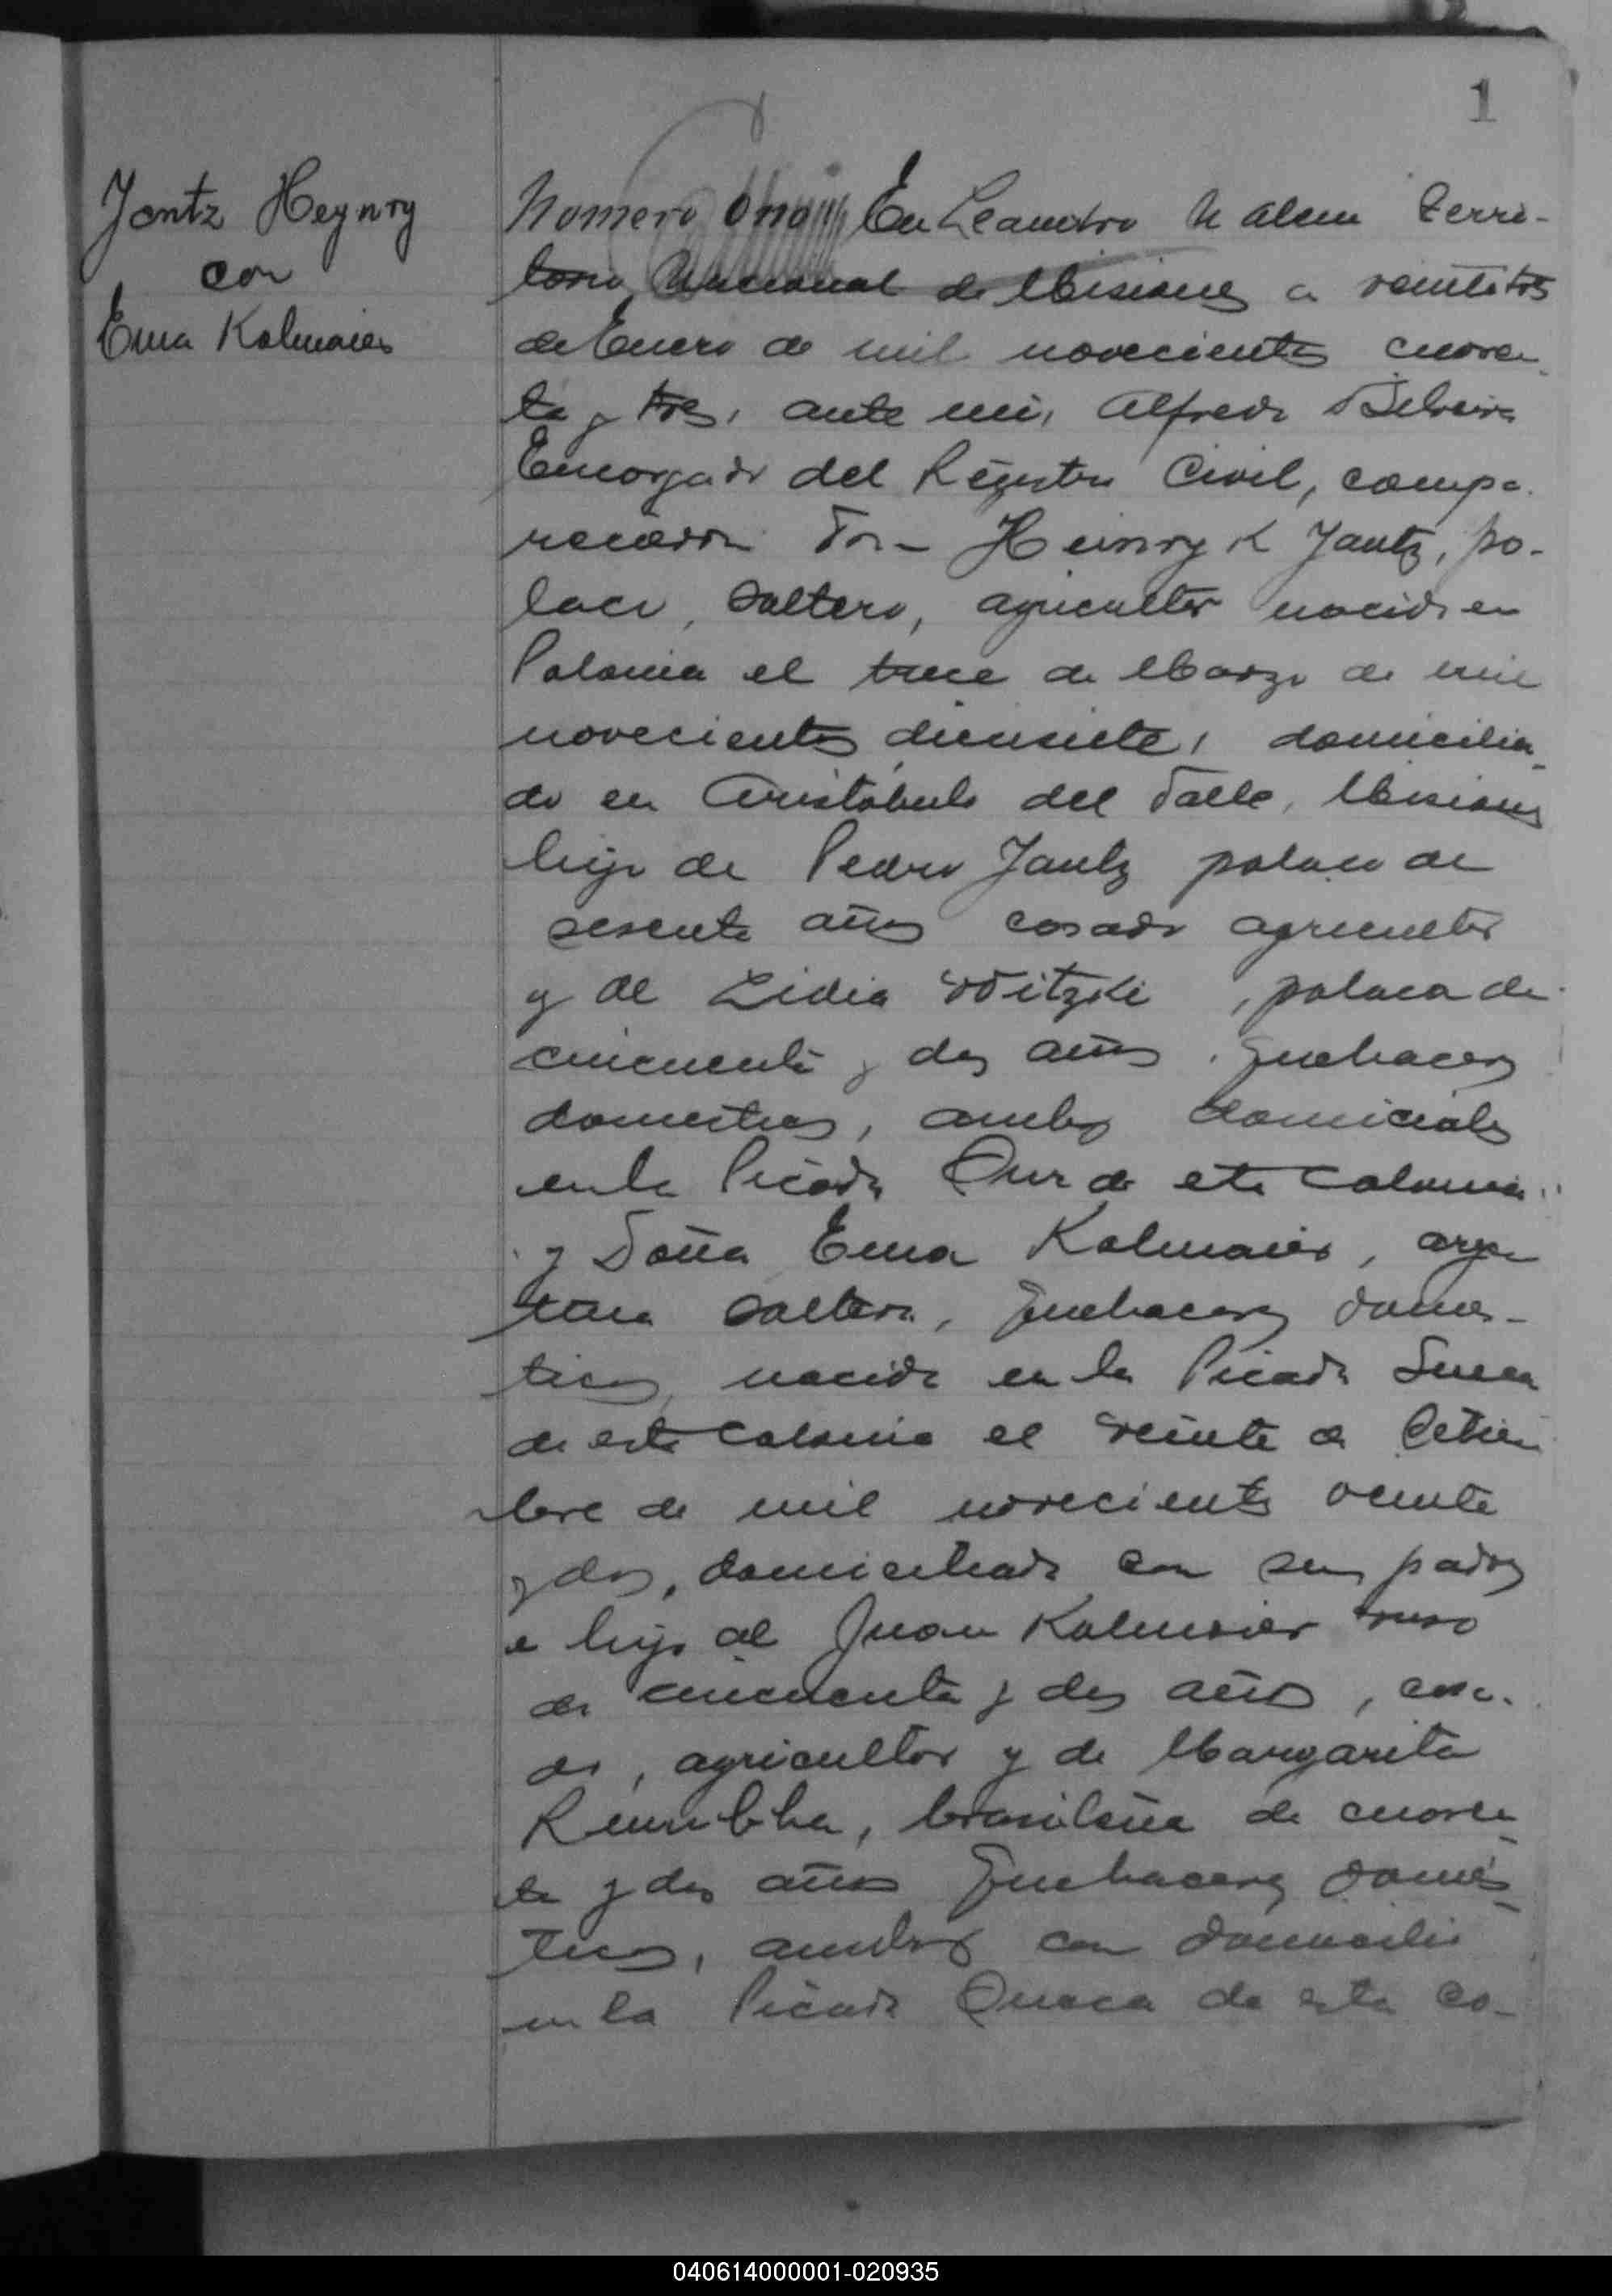 1
Jantz Heynry
con
Ema Kalmaier
Nomero Uno En Leandro N Alem Terri-
torio Nacional de Misiones a veintitres
de Enero de mil novecientos cuaren-
ta y tres, ante mi, Alfredo
Encargado del Registro Civil, compa-
recieron Don Heinryk Jantz, po-
laco, soltero, agricultor nacido en
Polonia el trece de Marzo de mil
novecientos diecisiete, domicilia-
do en Aristobulo del Valle, Misiones
hijo de Pedro Jantz polaco de
sesenta años casado agricultor
y de Lidia Witzke, polaca de
cincuenta y dos años. quehaceres
domesticos, ambos domiciliados
en la Picada Sur de esta Colonia
y Doña Ema Kalmaier, argen
tina soltera, quehaceres domes-
ticos nacida en la Picada Sueca
de esta Colonia el veinte de Setiem
bre de mil novecientos veinte
y dos, domiciliada con sus padres
e hija de Juan Kalmaier ruso
de cincuenta y dos años, casa-
do, agricultor y de Margarita
brasileña de cuaren-
ta y dos años quehaceres domés-
ticos, ambos con domicilio
en la Picada Sueca de esta Co-
040614000001-020935